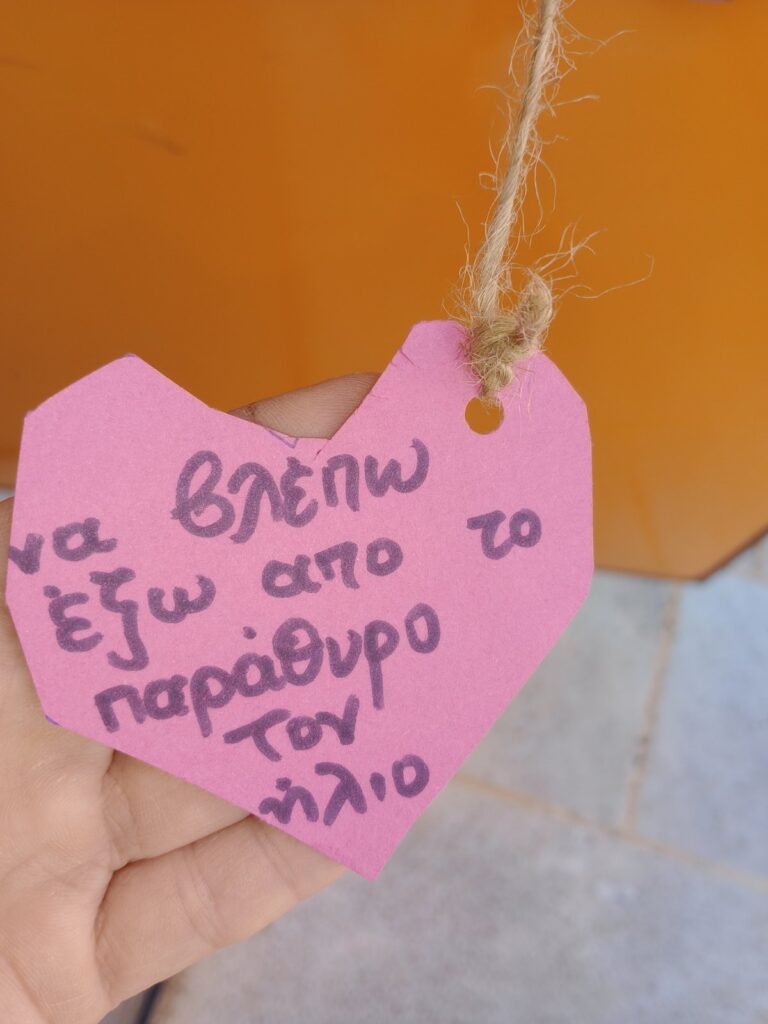 να βλέπω
έξω απο το
παράθυρο
τον
ήλιο